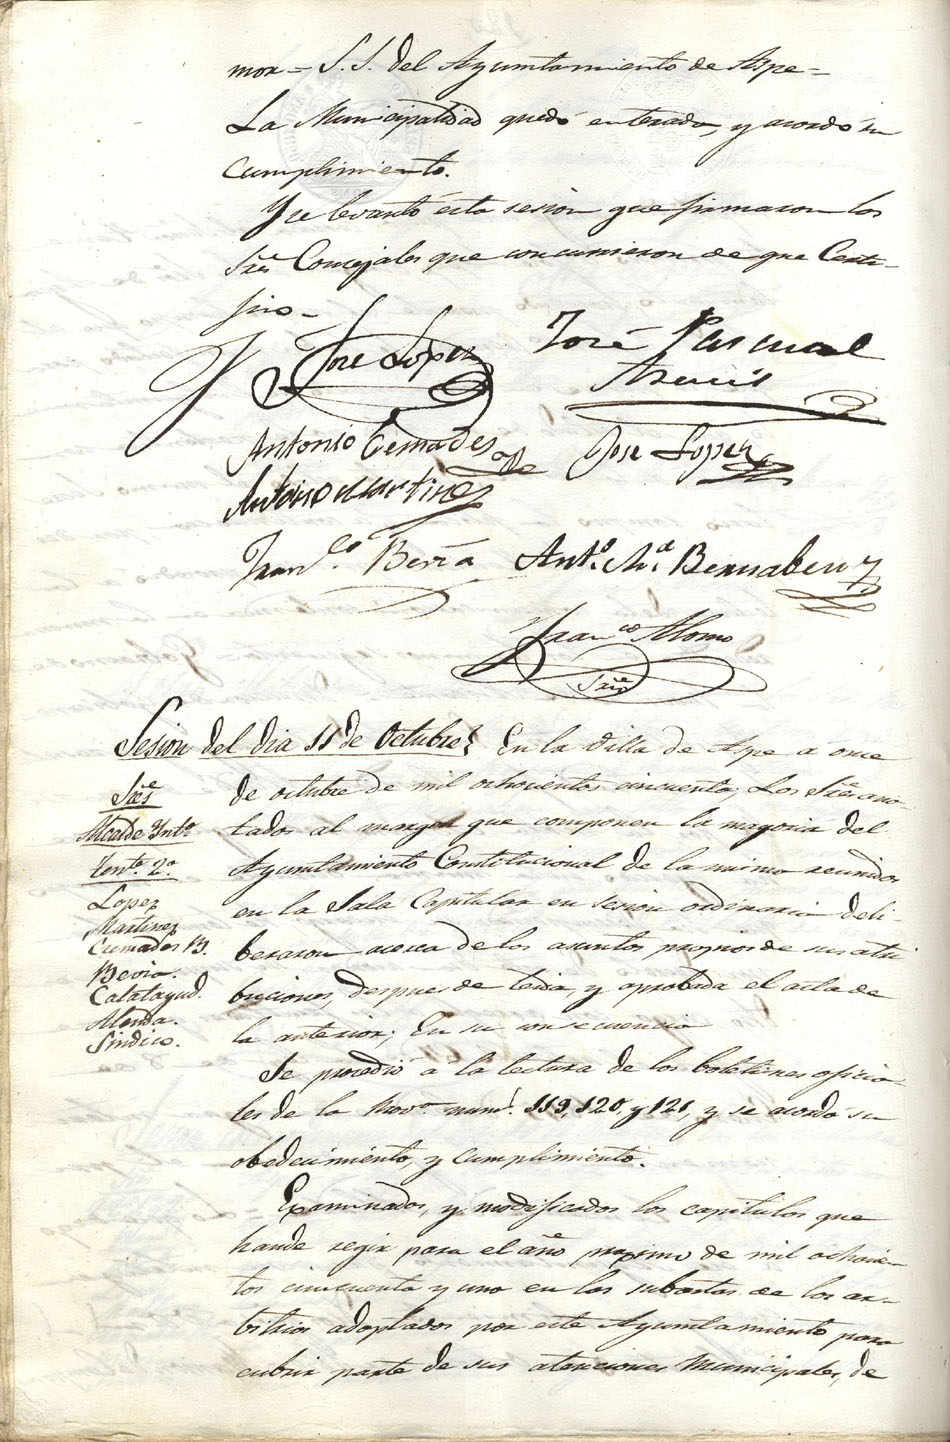 mor = S. S. del Ayuntamiento de Aspe =
La Municipalidad quedó enterada, y acordó su
cumplimiento.
Y se levantó esta sesion que firmaron los
Sres. Concejales que concurrieron de que Certi-
fico =
José Lopez
José Pascual
Asencio
Antonio Cremades
Jose Lopez
Antonio Martinez
Franco. Bevia
Anto. Ma. Bernabeu
Franco. Alonso
Srio
Sesion del dia 11 de Octubre
En la Villa de Aspe a once
de octubre de mil ochocientos cincuenta; Los Sres. ano
tados al margen que componen la mayoria del
Ayuntamiento Constitucional de la misma reunidos
en la Sala Capitular en sesion ordinaria deli-
beraron acerca de los asuntos propios de sus atri
buciones, despues de leida, y aprobada el acta de
la anterior; En su consecuencia
Sres
Alcalde Into.
Tente. 2o.
Lopez
Martinez
Cremades B.
Bevia.
Calatayud.
Alenda.
Sindico.
Se procedió a la lectura de los boletines oficia-
les de la Prova. num.s 119, 120, y 121, y se acordó su
obedecimiento, y cumplimiento.
Examinados, y modificados los capitulos que
hande regir para el año proximo de mil ochocien-
tos cincuenta y uno en las subastas de los ar-
bitrios adoptados por este Ayuntamiento para
cubrir parte de sus atenciones Municipales, de